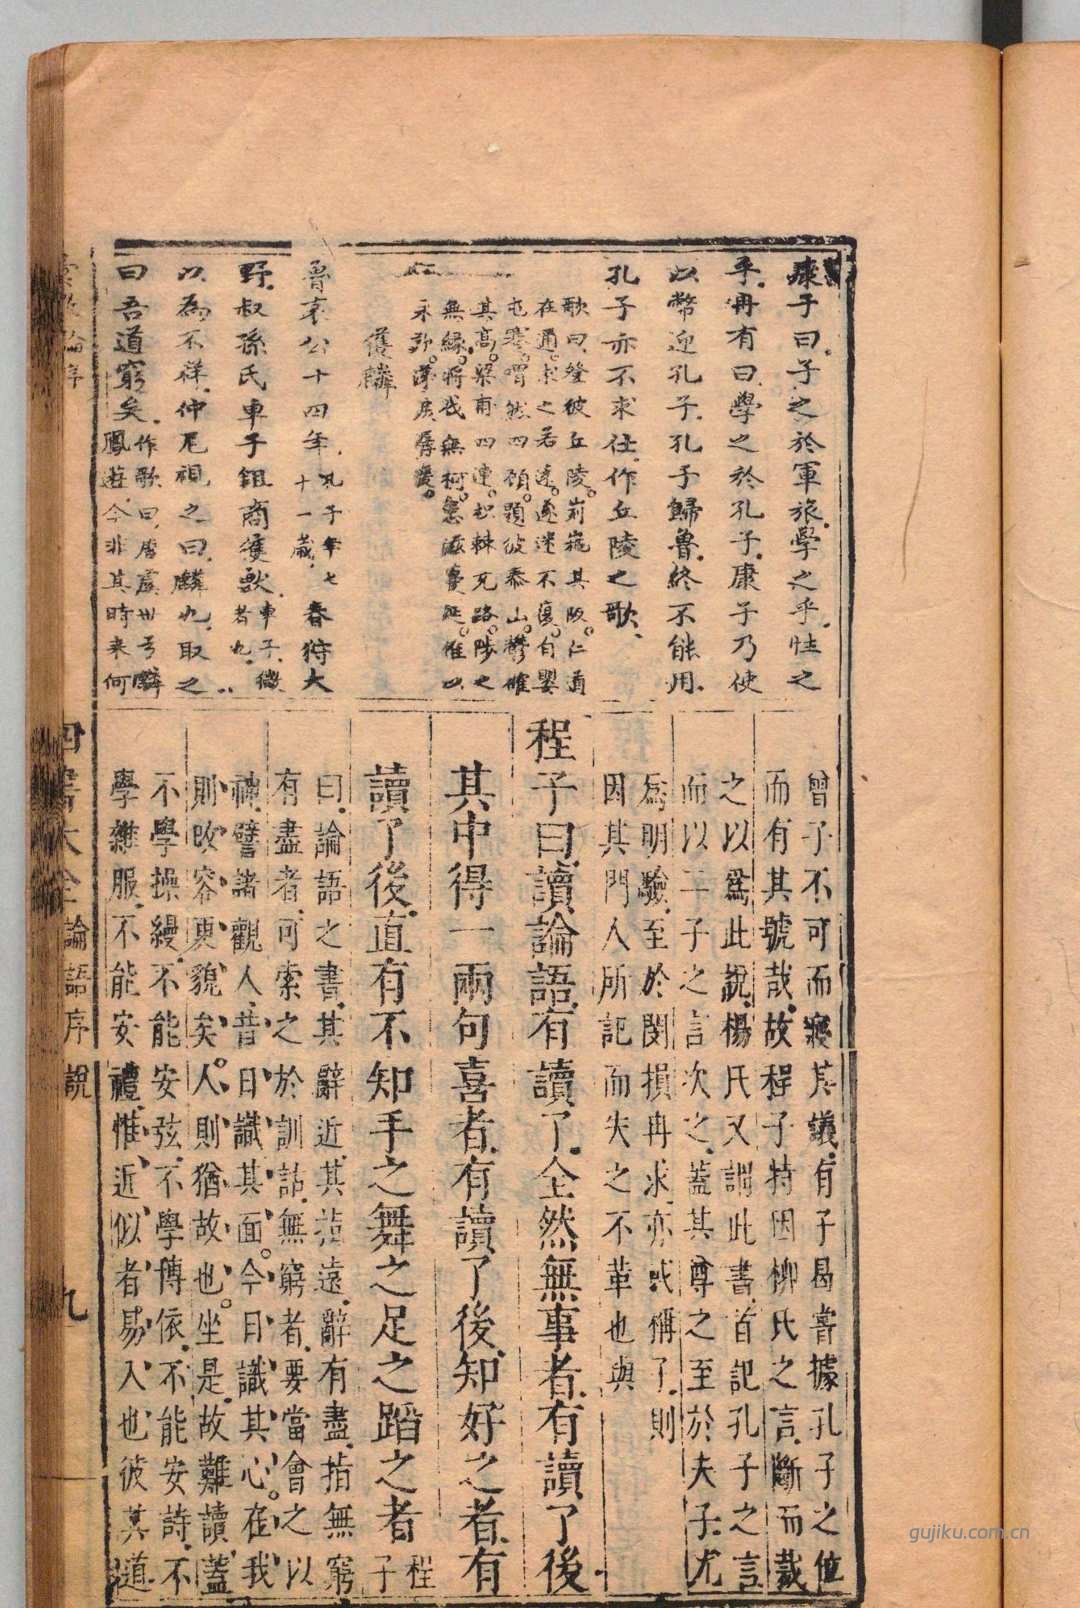 康子曰子之於軍旅學之乎性之
乎冉有曰學之於孔子康子乃使
以幣迎孔子孔子歸魯終不能用
孔子亦不求仕作丘陵之歌
歌曰登彼丘陵峛崺其阪仁道
在邇求之若遠遂迷不復自嬰
屯蹇喟然四顧題彼泰山鬱確
其高梁甫四連枳棘充路陟之
無緣將伐無柯患滋蔓延惟以
永歎涕霣潺湲
獲麟
魯哀公十四年孔子年七十一歲春狩大
野叔孫氏車子鉏商獲獸車子微者也
以為不祥仲尼視之曰麟也取之
曰吾道窮矣作歌曰唐虞世兮麟鳳遊今非其時來何
曾子不可而寢其議有子曷嘗據孔子之位
而有其號哉故程子特因柳氏之言斷而裁
之以爲此說楊氏又謂此書首記孔子之言
而以二子之言次之蓋其尊之至於夫子尤
爲明驗至於閔損冉求亦或稱子則
因其門人所記而失之不革也與
程子曰讀論語有讀了全然無事者有讀了後
其中得一兩句喜者有讀了後知好之者有
讀了後直有不知手之舞之足之蹈之者程子
曰論語之書其辭近其指遠辭有盡指無窮
有盡者可索之於訓詁無窮者要當會之以
神譬諸觀人昔日識其面今日識其心在我
則改容更貌矣人則猶故也坐是故難讀蓋
不學操縵不能安弦不學博依不能安詩不
學雜服不能安禮惟近似者易入也彼其道
四書大全 論語序說 九
gujiku.com.cn